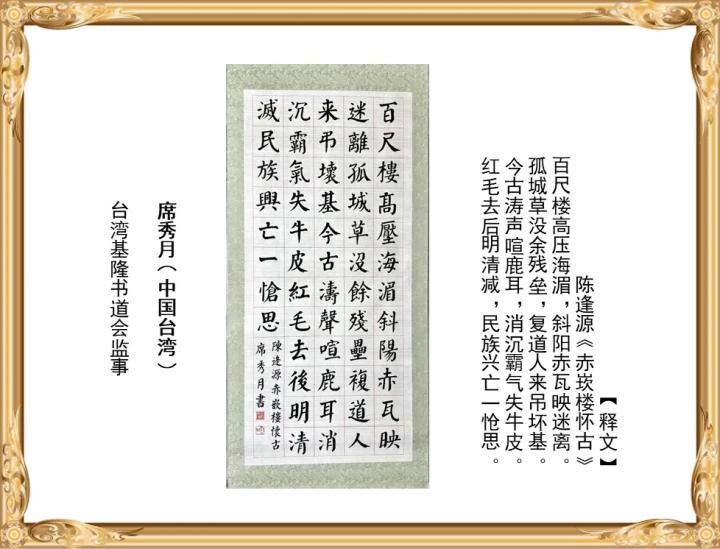 【释文】
陈逢源《赤崁楼怀古》
百尺楼高压海湄，斜阳赤瓦映迷离。
孤城草没余残垒，复道人来吊坏基。
今古涛声喧鹿耳，消沉霸气失牛皮。
红毛去后明清减，民族兴亡一怆思。
百尺樓髙壓海湄斜陽赤瓦映
迷離孤城草沒餘殘壘複道人
来弔壞基今古濤聲喧鹿耳消
沉霸氣失牛皮紅毛去後明清
滅民族興亡一愴思
陳逢源赤嵌樓懷古
席秀月書
席秀月（中国台湾）
台湾基隆书道会监事